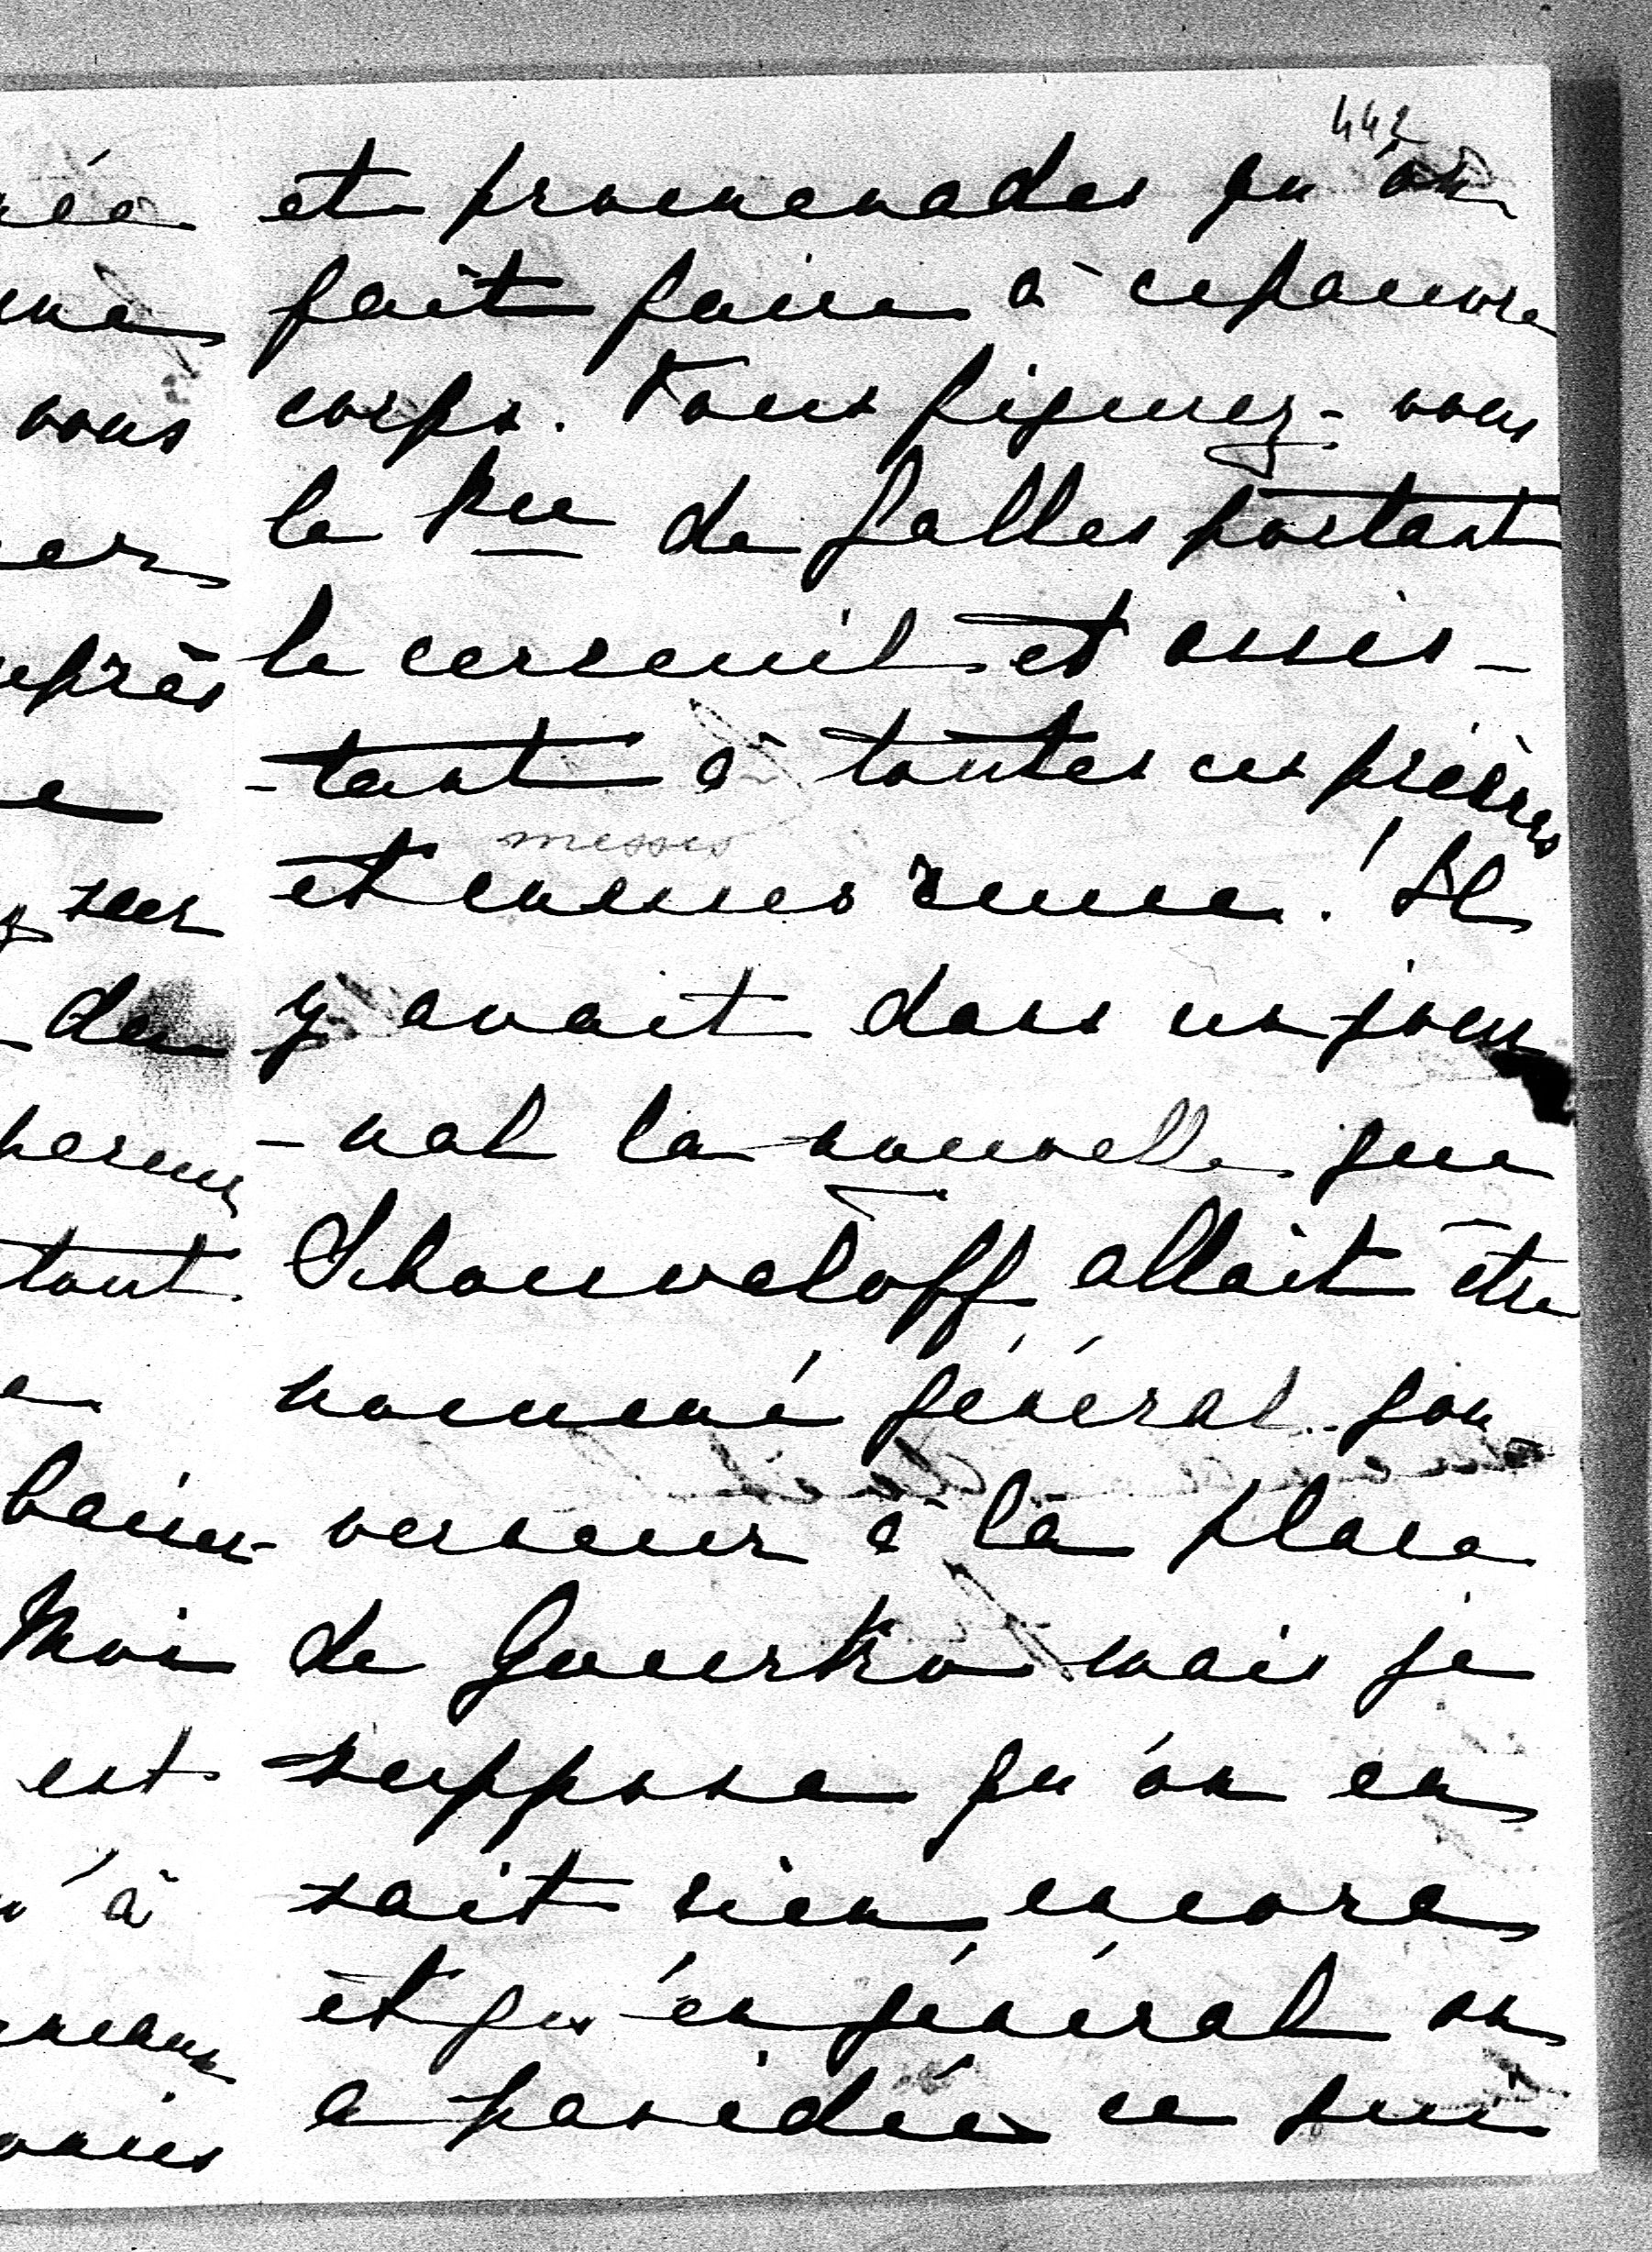 442
et promenades qu'on
fait faire à ce pauvre
corps. Vous figurez-vous
le Pce de Galles portant
le cerceuil et assis-
-tant à toutes ces prières
messes
et ! Il
y avait dans un jour
-nal la nouvelle que
Schouvaloff allait être
nommé général gou
verneur à la place
de Gourko mais je
suppose qu'on en
sait rien encore
et qu'en général on
a pas idée ce qui
née
vous
er
après
e
sur
de
tout
Moi
est
à